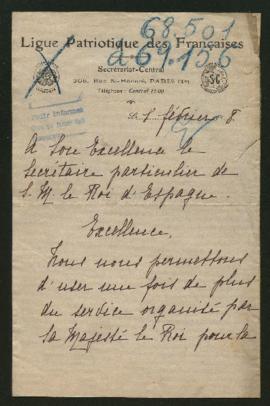 68.501
Ligue Patriotique des Françaises
à 69.156
Secrétariat-Central
368, Rue St-Honoré, PARIS (1er)
Téléphone : Central
Le 1 février 8
A Son Excellence le
Secrétaire particulier de
S. M. le Roi d'Espagne.
Excellence,
Nous nous permettons
d'user une fois de plus
du service organisé par
Sa Majesté le Roi pour la